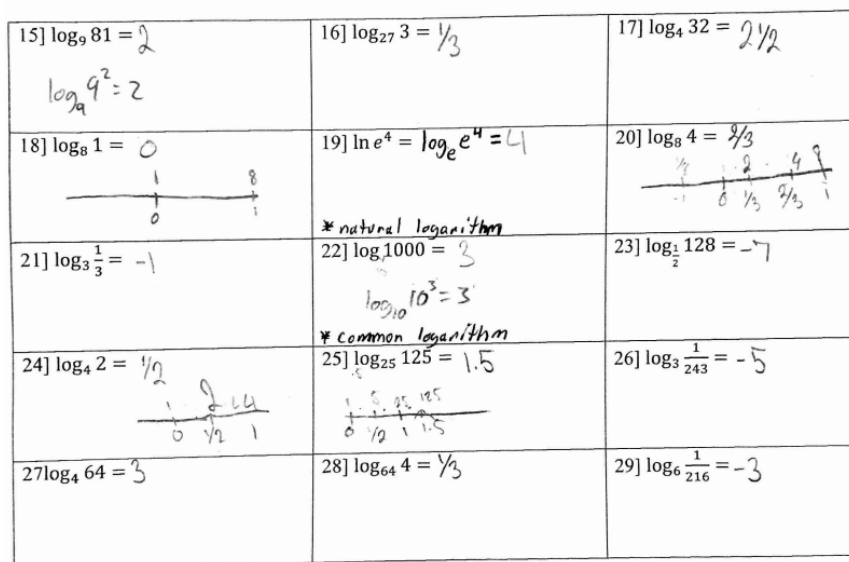 15] log₉ 81 = 2
log₉ 9² = 2
16] log₂₇ 3 = 1/3
17] log₄ 32 = 2 1/2
18] log₈ 1 = 0
1 8
0 1
19] ln e⁴ = logₑ e⁴ = 4
* natural logarithm
20] log₈ 4 = 2/3
1 2 4 8
-1 0 1/3 2/3 1
21] log₃ 1/3 = -1
22] log 1000 = 3
log₁₀ 10³ = 3
* common logarithm
23] log_(1/2) 128 = -7
24] log₄ 2 = 1/2
1 2 4
0 1/2 1
25] log₂₅ 125 = 1.5
.5
1 5 25 125
0 1/2 1 1.5
26] log₃ 1/243 = -5
27log₄ 64 = 3
28] log₆₄ 4 = 1/3
29] log₆ 1/216 = -3